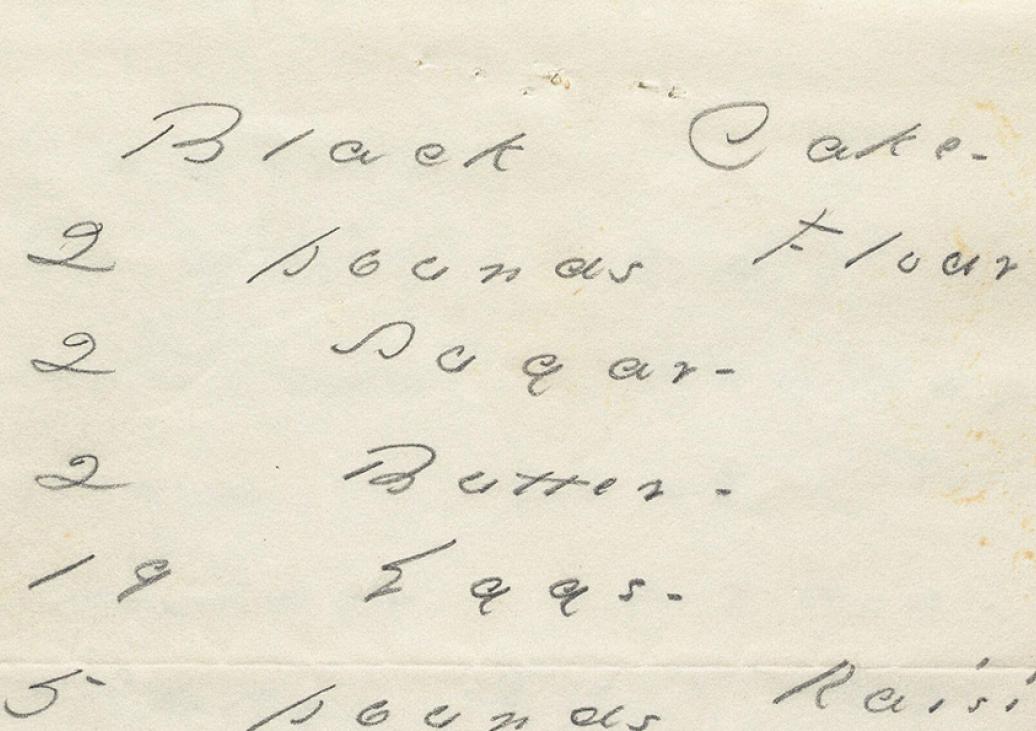 Black Cake-
2 pounds Flour
2 Sugar-
2 Butter-
19 Eggs-
5 pounds Raisi